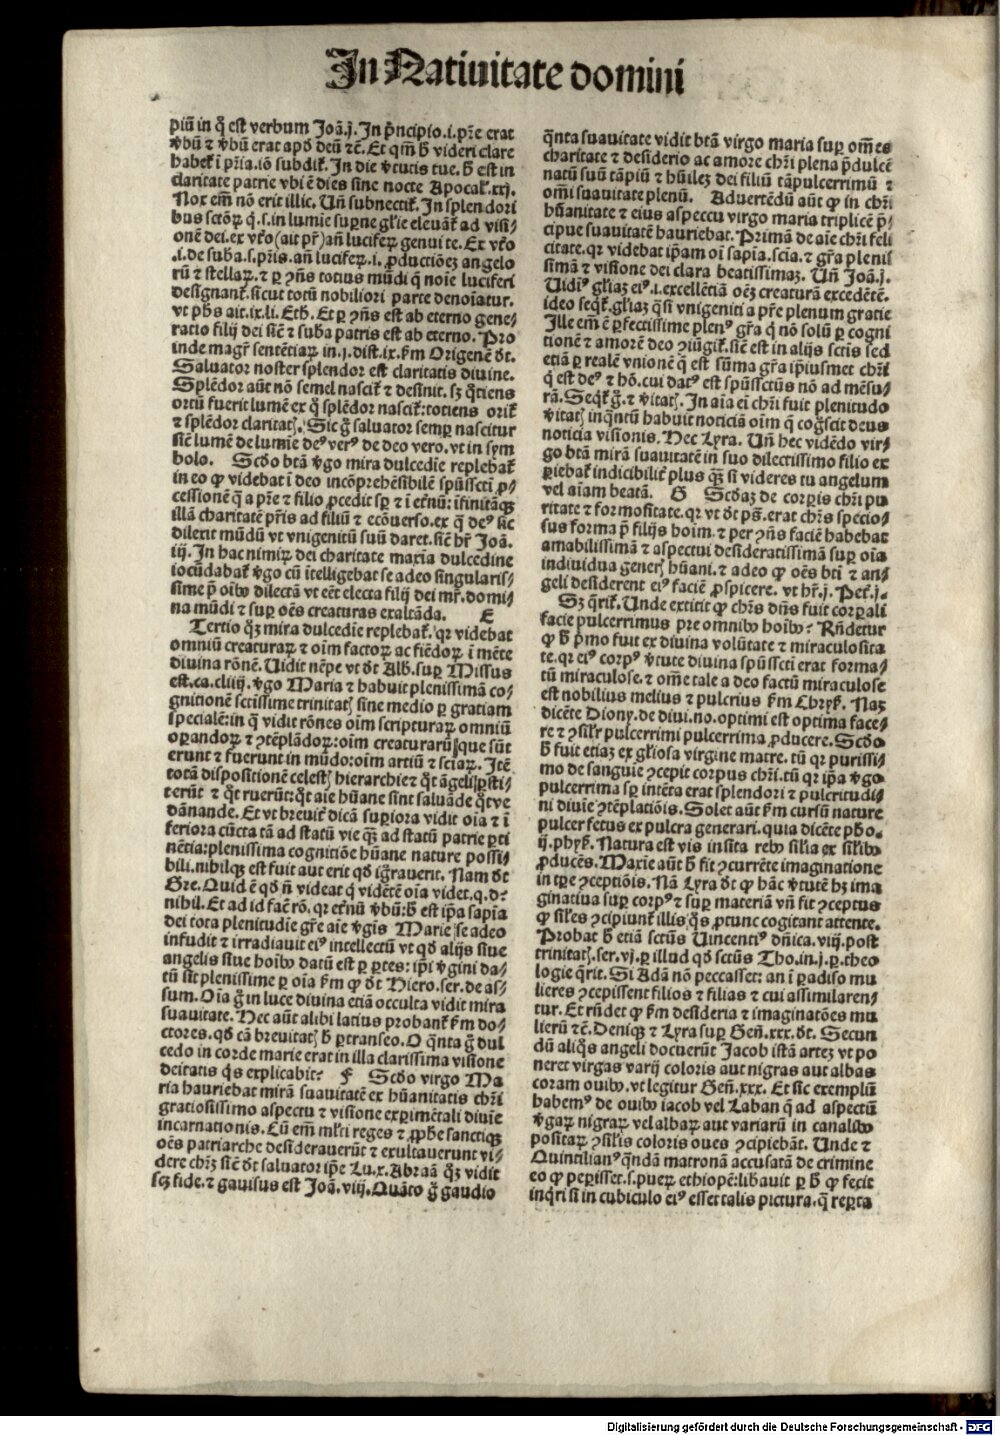 In Natiuitate domini
piū in q̄ est verbum Joā.j. In p̄ncipio.i.pr̄e erat
v̄bū ⁊ v̄bū erat apd̄ deū ⁊c̄. Et qm̄ h̄ videri clare
habet᷑ ī pr̄ia.iō subdit᷑. In die v̄tutis tue. h̄ est in
claritate patrie vbi ē dies sine nocte Apocal᷑.xxj.
Nox em̄ nō erit illic. Un̄ subnectit᷑. In splendori
bus sctōꝝ q̄.s.in lumīe suꝑne gl̓ie eleuāt᷑ ad visi⸗
onē dei.ex vt̓o(ait pr̄)an̄ luciferꝝ genui te. Ex vt̓o
.i.de suba.s.pr̄is.an̄ luciferꝝ.i.ꝓductiōeꝫ angelo
rū ⁊ stellaꝝ.⁊ ꝑ ꝯn̄s totus mūdi q̄ noīe luciferi
designant᷑.sicut totū nobiliori parte denoīatur.
vt ph̄s ait.ix.li. Eth. Et ꝑ ꝯn̄s est ab eterno gene⸗
ratio filij dei sic̄ ⁊ suba patris est ab eterno. Pro
inde magr̄ sentētiaꝝ in.j.dist.ix.ẜm Origenē d̄t.
Saluator noster splendor est claritatis diuine.
Splēdor aūt nō semel nascit᷑ ⁊ desinit. sꝫ q̄tiens
ortū fuerit lumē ex q̄ splēdor nascit᷑:totiens orit᷑
⁊ splēdor claritatꝭ. Sic ḡ saluator semꝑ nascitur
sic̄ lumē de lumīe deꝰ verꝰ de deo vero.vt in sym
bolo. Scd̄o btā v̄go mira dulcedīe replebat᷑
in eo ꝙ videbat ī deo incōprehēsibilē spūssctī ꝓ⸗
cessionē q̄ a pr̄e ⁊ filio ꝓcedit sꝑ ⁊ ī et̄nū: īfinitāqꝫ
illā charitatē pr̄is ad filiū ⁊ ecōuerso.ex q̄ deꝰ sic
dilexit mūdū vt vnigenitū suū daret.sic̄ hr̄ Joā.
iij. In hac nimiꝝ dei charitate maria dulcedine
iocūdabat᷑ v̄go cū ītelligebat se adeo singularis⸗
sime p̄ oībꝰ dilectā vt eēt electa filij dei mr̄.domi⸗
na mūdi ⁊ suꝑ oēs creaturas exaltāda. E
Tertio qꝫ mira dulcedīe replebat᷑. qr videbat
omniū creaturaꝝ ⁊ oīm factoꝝ ac fiēdoꝝ ī mēte
diuina rōnē. Uidit nēpe vt d̄t Alb.suꝑ Missus
est.ca.cliiij. v̄go Maria ⁊ habuit plenissimā co⸗
gnitionē sctīssime trinitatꝭ sine medio ꝑ gratiam
specialē:in q̄ vidit rōnes oīm scripturaꝝ omniū
oꝑandoꝝ ⁊ ꝯtēplādoꝝ:oīm creaturarū que sūt
erunt ⁊ fuerunt in mūdo:oīm artiū ⁊ sciaꝝ. Itē
totā dispositionē celestꝭ hierarchie ⁊ q̄t āgeli ꝑsti⸗
terūt ⁊ q̄t ruerūt:q̄t aīe hūane sint saluāde q̄tve
dānande. Et vt breuit᷑ dicā suꝑiora vidit oīa ⁊ ī
feriora cūcta tā ad statū vie qꝫ̄ ad statū patrie ꝑti
nētia:plenissima cognitiōe hūane nature possi⸗
bili.nihilqꝫ est fuit aut erit qd̄ iḡrauerit. Nam d̄t
Gre. Quid ē qd̄ n̄ videat q̄ vidētē oīa videt.q.d.
nihil. Et ad id faē rō. qr et̄nū v̄bū:h̄ est ip̄a sapīa
dei tota plenitudīe gr̄e aīe v̄gīs Marie se adeo
infudit ⁊ irradiauit eiꝰ intellectū vt qd̄ alijs siue
angelis siue hoībꝰ datū est ꝑ ꝑtes: ip̄i v̄gini da⸗
tū sit plenissime ꝑ oīa ẜm ꝙ d̄t Hiero.ser.de as⸗
sum. Oīa ḡ in luce diuina etiā occulta vidit mira
suauitate. Hec aūt alibi latius probant᷑ ẜm do⸗
ctores.qd̄ cā breuitatꝭ h̄ ꝑtranseo. O q̄nta ḡ dul
cedo in corde marie erat in illa clarissima visione
deitatis q̄s explicabit? F Scd̄o virgo Ma
ria hauriebat mirā suauitatē ex hūanitatis chr̄i
gratiosissimo aspectu ⁊ visione exꝑimētali diuīe
incarnationis. Cū em̄ ml̓ti reges ⁊ ꝓph̄e sanctiqꝫ
oēs patriarche desiderauerūt ⁊ exultauerunt vi⸗
dere chr̄ꝫ sic̄ d̄t saluator ip̄e Lu.x. Abraā qꝫ vidit
scꝫ fide.⁊ gauisus est Joā.viij. Quāto ḡ gaudio
q̄nta suauitate vidit btā virgo maria suꝑ om̄es
charitate ⁊ desiderio ac amore chr̄i plena p̄dulcē
natū suū tāpiū ⁊ hūileꝫ dei filiū tāpulcerrimū ⁊
omī suauitate plenū. Aduertēdū aūt ꝙ in chr̄i
hūanitate ⁊ eius aspectu virgo maria triplicē p̄⸗
cipue suauitatē hauriebat. Primā de aīe chr̄i feli
citate.qr videbat ip̄am oī sapīa.scīa.⁊ gr̄a plenis
simā ⁊ visione dei clara beatissimaꝫ. Un̄ Joā.j.
Uidiꝰ gl̓iaꝫ eiꝰ.i.excellētiā oēꝫ creaturā excedētē.
ideo seqt᷑.gl̓iaꝫ q̄si vnigeniti a pr̄e plenum gratie
Ille em̄ ē ꝑfectissime plenꝰ gr̄a q̄ nō solū ꝑ cogni
tionē ⁊ amorē deo ꝯiūgit᷑.sic̄ est in alijs sctis sed
etiā ꝑ realē vnionē q̄ est sūma gr̄a ip̄iusmet chr̄i
q̄ est deꝰ ⁊ hō.cui datꝰ est spūssctūs nō ad mēsu⸗
rā. Seqt᷑ ḡ.⁊ v̄itatꝭ. In aīa eī chr̄i fuit plenitudo
v̄itatꝭ inq̄ntū habuit noticiā oīm q̄ coḡscit deus
noticia visionis. Hec Lyra. Un̄ hec vidēdo vir⸗
go btā mirā suauitatē in suo dilectissimo filio ex
ꝑiebat᷑ indicibilit᷑ plus qꝫ̄ si videres tu angelum
vel aīam beatā. G Scd̄aꝫ de corꝑis chr̄i pu
ritate ⁊ formositate.qr vt d̄t ps̄.erat chr̄s specio⸗
sus forma p̄ filijs hoīm.⁊ per ꝯn̄s faciē habebat
amabilissimā ⁊ aspectui desideratissimā suꝑ oīa
indiuidua generꝭ hūani.⁊ adeo ꝙ oēs bti ⁊ an⸗
geli desiderent eiꝰ faciē ꝓspicere. vt hr̄.j. Pet᷑.j.
Sꝫ q̄rit᷑. Unde extitit ꝙ chr̄s dn̄s fuit corꝑali
facie pulcerrimus pre omnibꝰ hoībꝰ? Rn̄detur
ꝙ h̄ p̄mo fuit ex diuina volūtate ⁊ miraculosita
te.qr eiꝰ corpꝰ v̄tute diuina spūssctī erat forma⸗
tū miraculose.⁊ om̄e tale a deo factū miraculose
est nobilius melius ⁊ pulcrius ẜm Chrys᷑. Naꝫ
dicēte Diony.de diui.no.optimi est optima face⸗
re ⁊ ꝯsil̓r pulcerrimi pulcerrima ꝓducere. Scd̄o
h̄ fuit etiaꝫ ex gl̓iosa virgine matre.tū qr purissi⸗
mo de sanguie ꝯcepit corpus chr̄i.tū qr ip̄a v̄go
pulcerrima sꝑ intēta erat splendori ⁊ pulcritudi⸗
ni diuīe ꝯtēplatiōis. Solet aūt ẜm cursū nature
pulcer fetus ex pulcra generari.quia dicēte ph̄o.
ij.phys᷑. Natura est vis insita rebꝰ sil̓ia ex sil̓ibꝰ
ꝓducēs. Maxīe aūt h̄ fit ꝯcurrēte imaginatione
in tꝑe ꝯceptiōis. Nā Lyra d̄t ꝙ hāc v̄tutē hꝫ ima
ginatiua suꝑ corpꝰ ⁊ suꝑ materiā vn̄ fit ꝯceptus
ꝙ sil̓es ꝯcipiunt᷑ illis q̄s ꝓtunc cogitant attente.
Probat h̄ etiā sctūs Uincentiꝰ dn̄ica.viij.post
trinitatꝭ.ser.vj.ꝑ illud qd̄ sctūs Tho.in.j.ꝑ.theo
logie q̄rit. Si Adā nō peccasset: an ī ꝑadiso mu
lieres ꝯcepissent filios ⁊ filias ⁊ cui assimilaren⸗
tur. Et rn̄det ꝙ ẜm desideria ⁊ imaginatōes mu
lierū ⁊c̄. Deniqꝫ ⁊ Lyra suꝑ Gen̄.xxx.d̄t. Secun
dū aliq̄s angeli docuerūt Jacob istā arteꝫ vt po
neret virgas varij coloris aut nigras aut albas
coram ouibꝰ.vt legitur Gen̄.xxx. Et sic exemplū
habemꝰ de ouibꝰ iacob vel Laban q̄ ad aspectū
v̄gaꝝ nigraꝝ vel albaꝝ aut variarū in canalibꝰ
positaꝝ ꝯsil̓is coloris oues ꝯcipiebāt. Unde ⁊
Quintilianꝰ q̄ndā matronā accusatā de crimine
eo ꝙ peꝑisset.s.pueꝝ ethiopē:lib̄auit ꝑ h̄ ꝙ fecit
inq̄ri si in cubiculo eiꝰ esset talis pictura.q̄ reꝑta